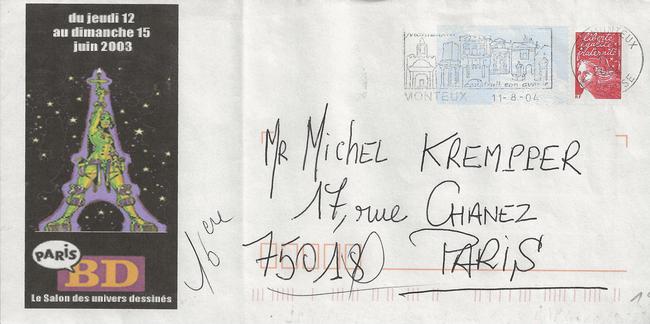 du jeudi 12
au dimanche 15
juin 2003
PARIS
BD
Le Salon des univers dessinés
MONTEUX 11-8-04
liberté
égalité
fraternité
Mr Michel KREMPPER
17, rue CHANEZ
75018 PARIS
16eme